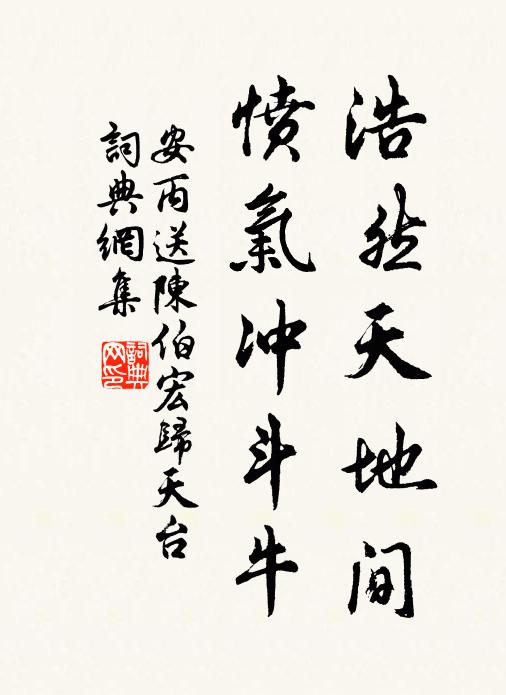 浩然天地間
憤氣冲斗牛
安丙送陳伯宏歸天台
詞典網集
詞典网印